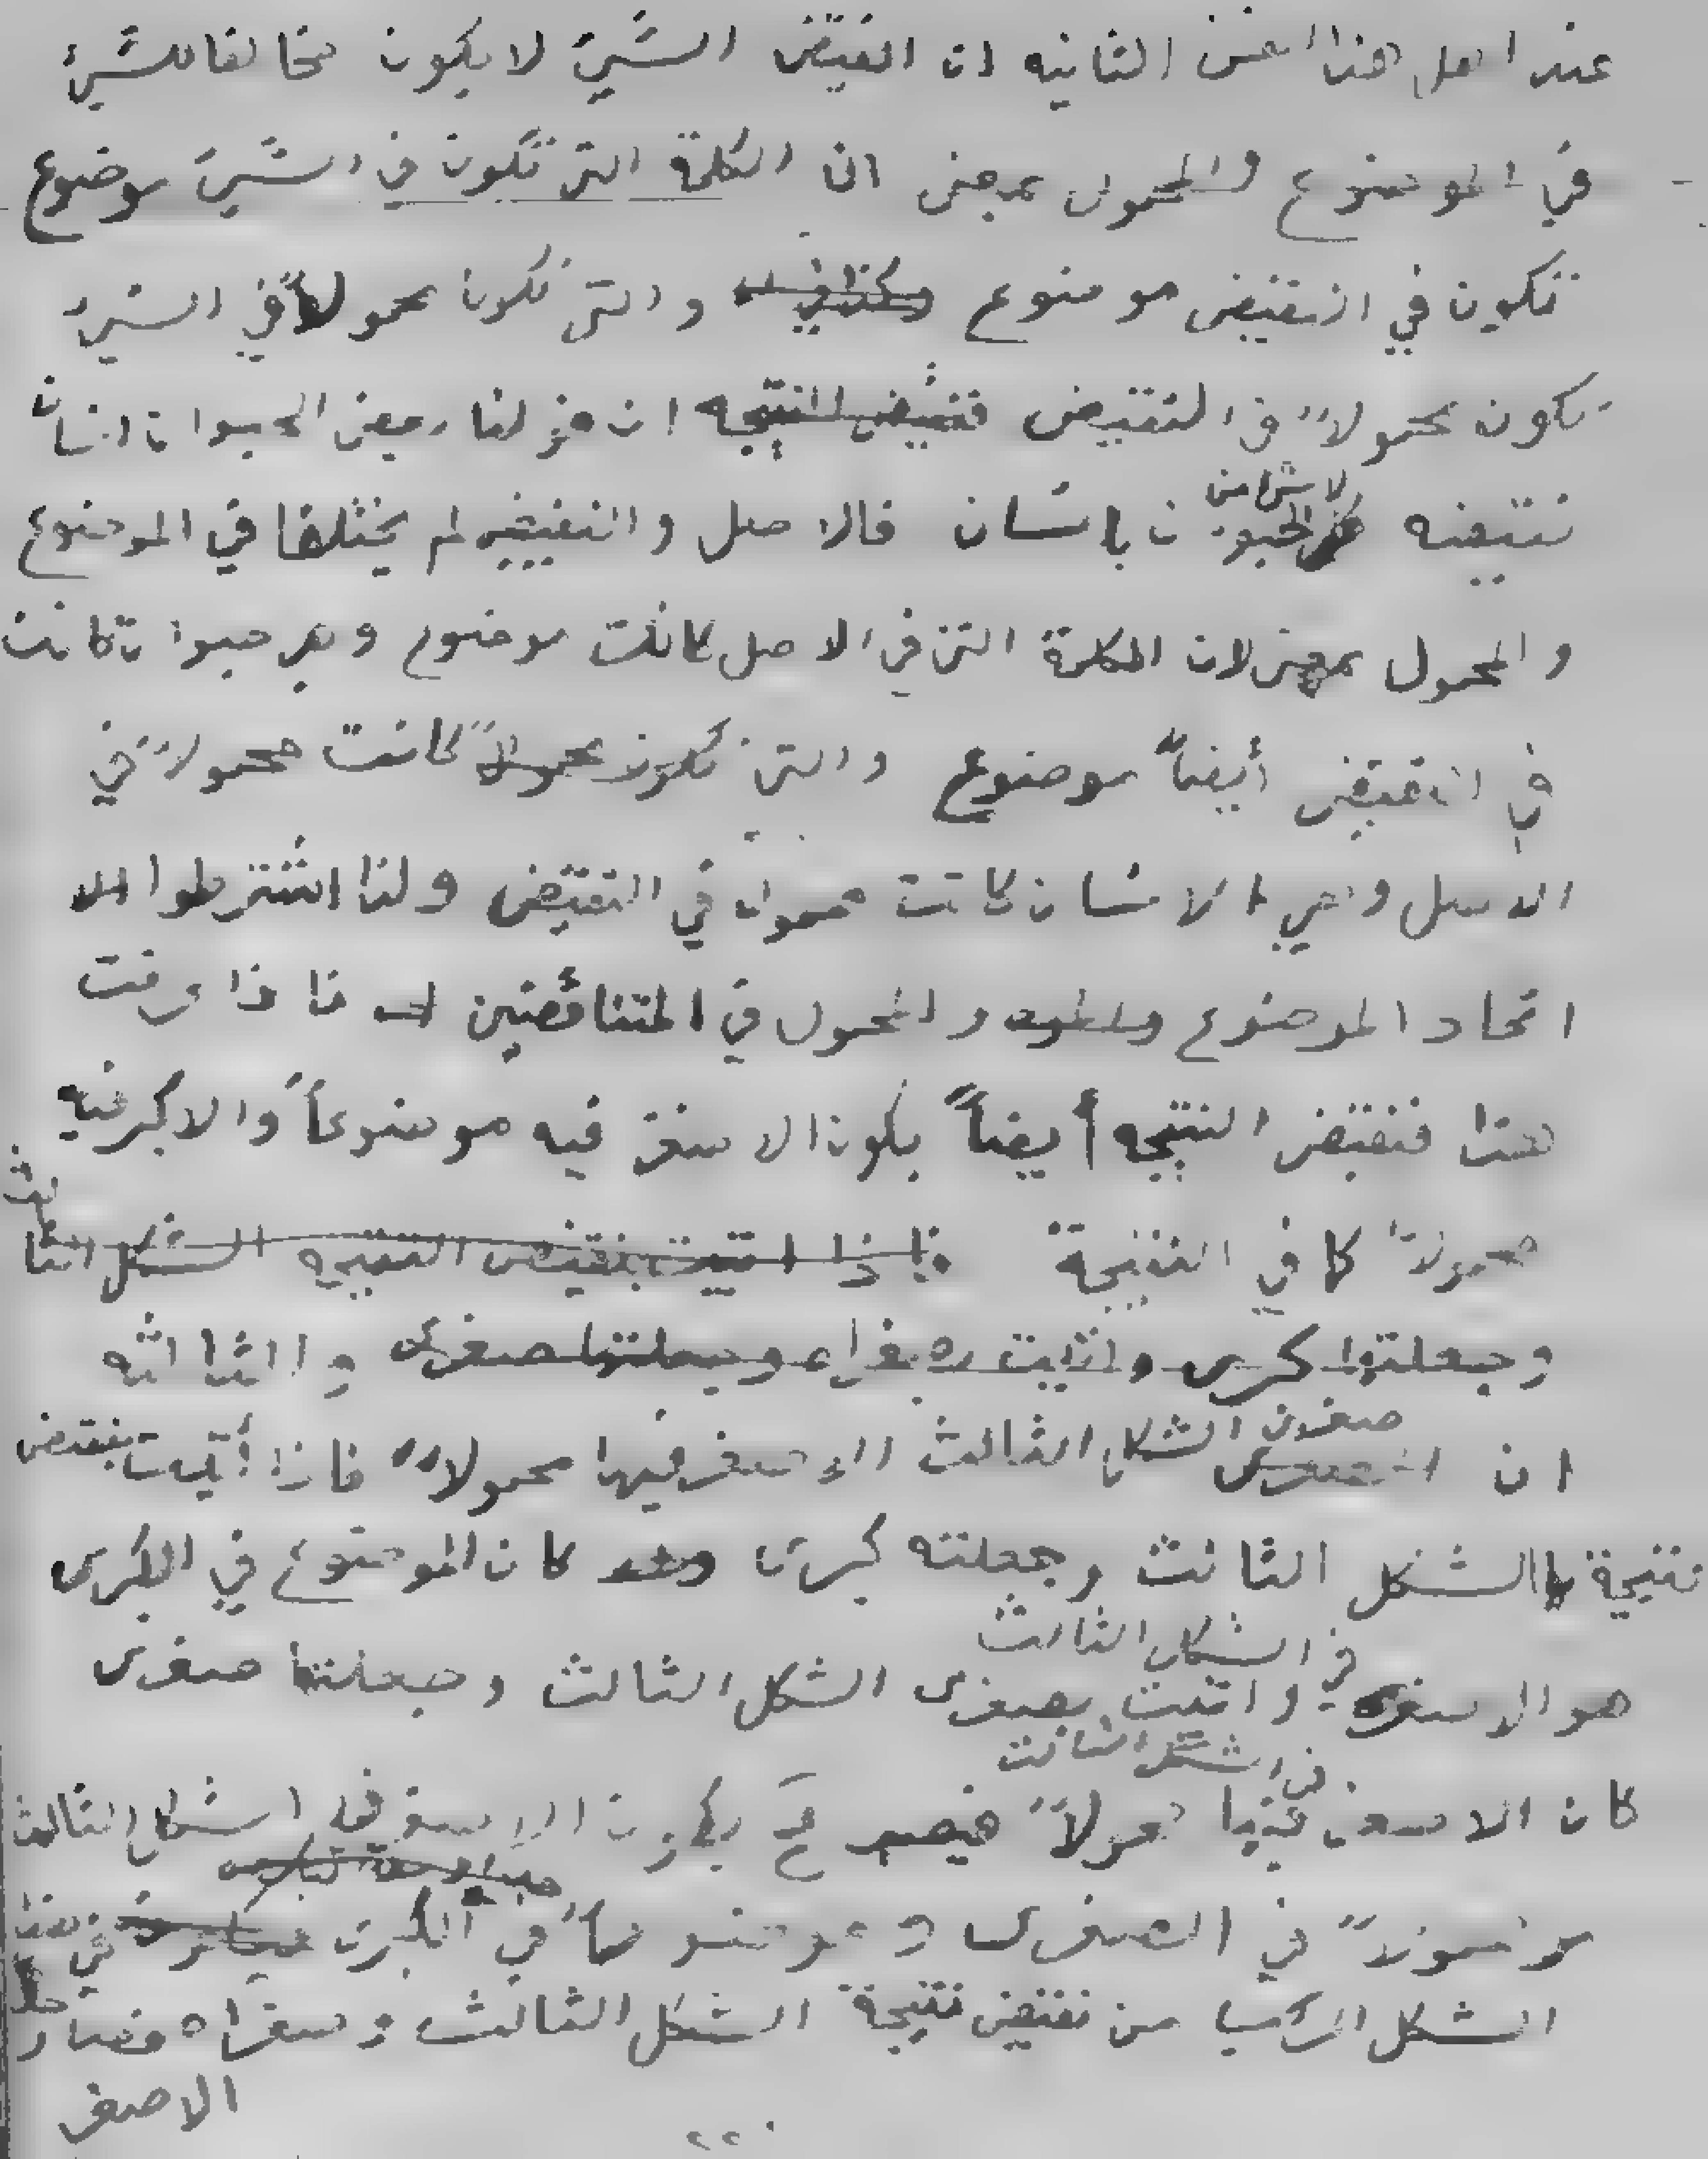 عند اهل هذا الفن الثانيه ان النقيض الشيء لا يكون مخالفا للشيء
في الموضوع والمحمول بمعنى ان الكلمة التي تكون في الشيء موضوع
تكون في النقيض موضوع والتي تكون محمولاً في الشيء
تكون محمولاً في النقيض فنقيض النتيجه ان قولنا بعض الحيوان انسان
نقيضه لا شيء من الحيوان بانسان فالاصل والنقيض لم يختلفا في الموضوع
والمحمول بمعنى لان الكلمة التي في الاصل كانت موضوع وهي حيوان كانت
في النقيض أيضاً موضوع والتي تكون محمولاً كانت محمولاً في
الاصل وهي الانسان كانت محمولا في النقيض ولذا اشترطوا
اتحاد الموضوع والمحمول في المتناقضين فاذا عرفت
هذا فنقيض النتيجه أيضاً يكون الاصغر فيه موضوعاً والاكبر فيه
محمولاً كما في النتيجة فاذا اتيت بنقيض النتيجه الشكل الثالث
وجعلتها كبرى واتيت بصغراه وجعلتها صغرى والثالثه
ان الصغرى صغرى الشكل الثالث الاصغر فيها محمولاً فاذا أتيت بنقيض
نتيجة الشكل الثالث وجعلته كبرى كان الموضوع في الكبرى
هو الاصغر في الشكل الثالث واتيت بصغرى الشكل الثالث وجعلتها صغرى
كان الاصغر في الشكل الثالث فيها محمولاً فيصير ح يكون الاصغر في الشكل الثالث
محمولاً في الصغرى وموضوعاً في الكبرى في هذا
الشكل المركب من نقيض نتيجة الشكل الثالث وصغراه فصار
الاصغر
٢٢٠